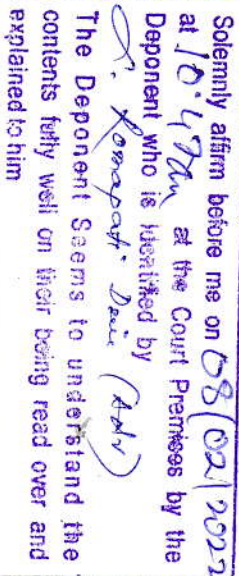 Solemnly affirm before me on 08/02/2022
at 10:47am at the Court Premises by the
Deponent who is identified by
(Adv)
The Deponent Seems to understand the
contents fully well on their being read over and
explained to him